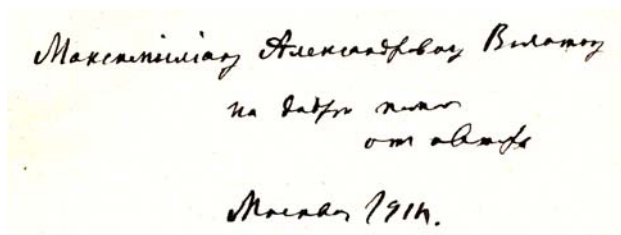 Максимилiану Александровичу Волошину
на добрую память
от автора
Москва 191